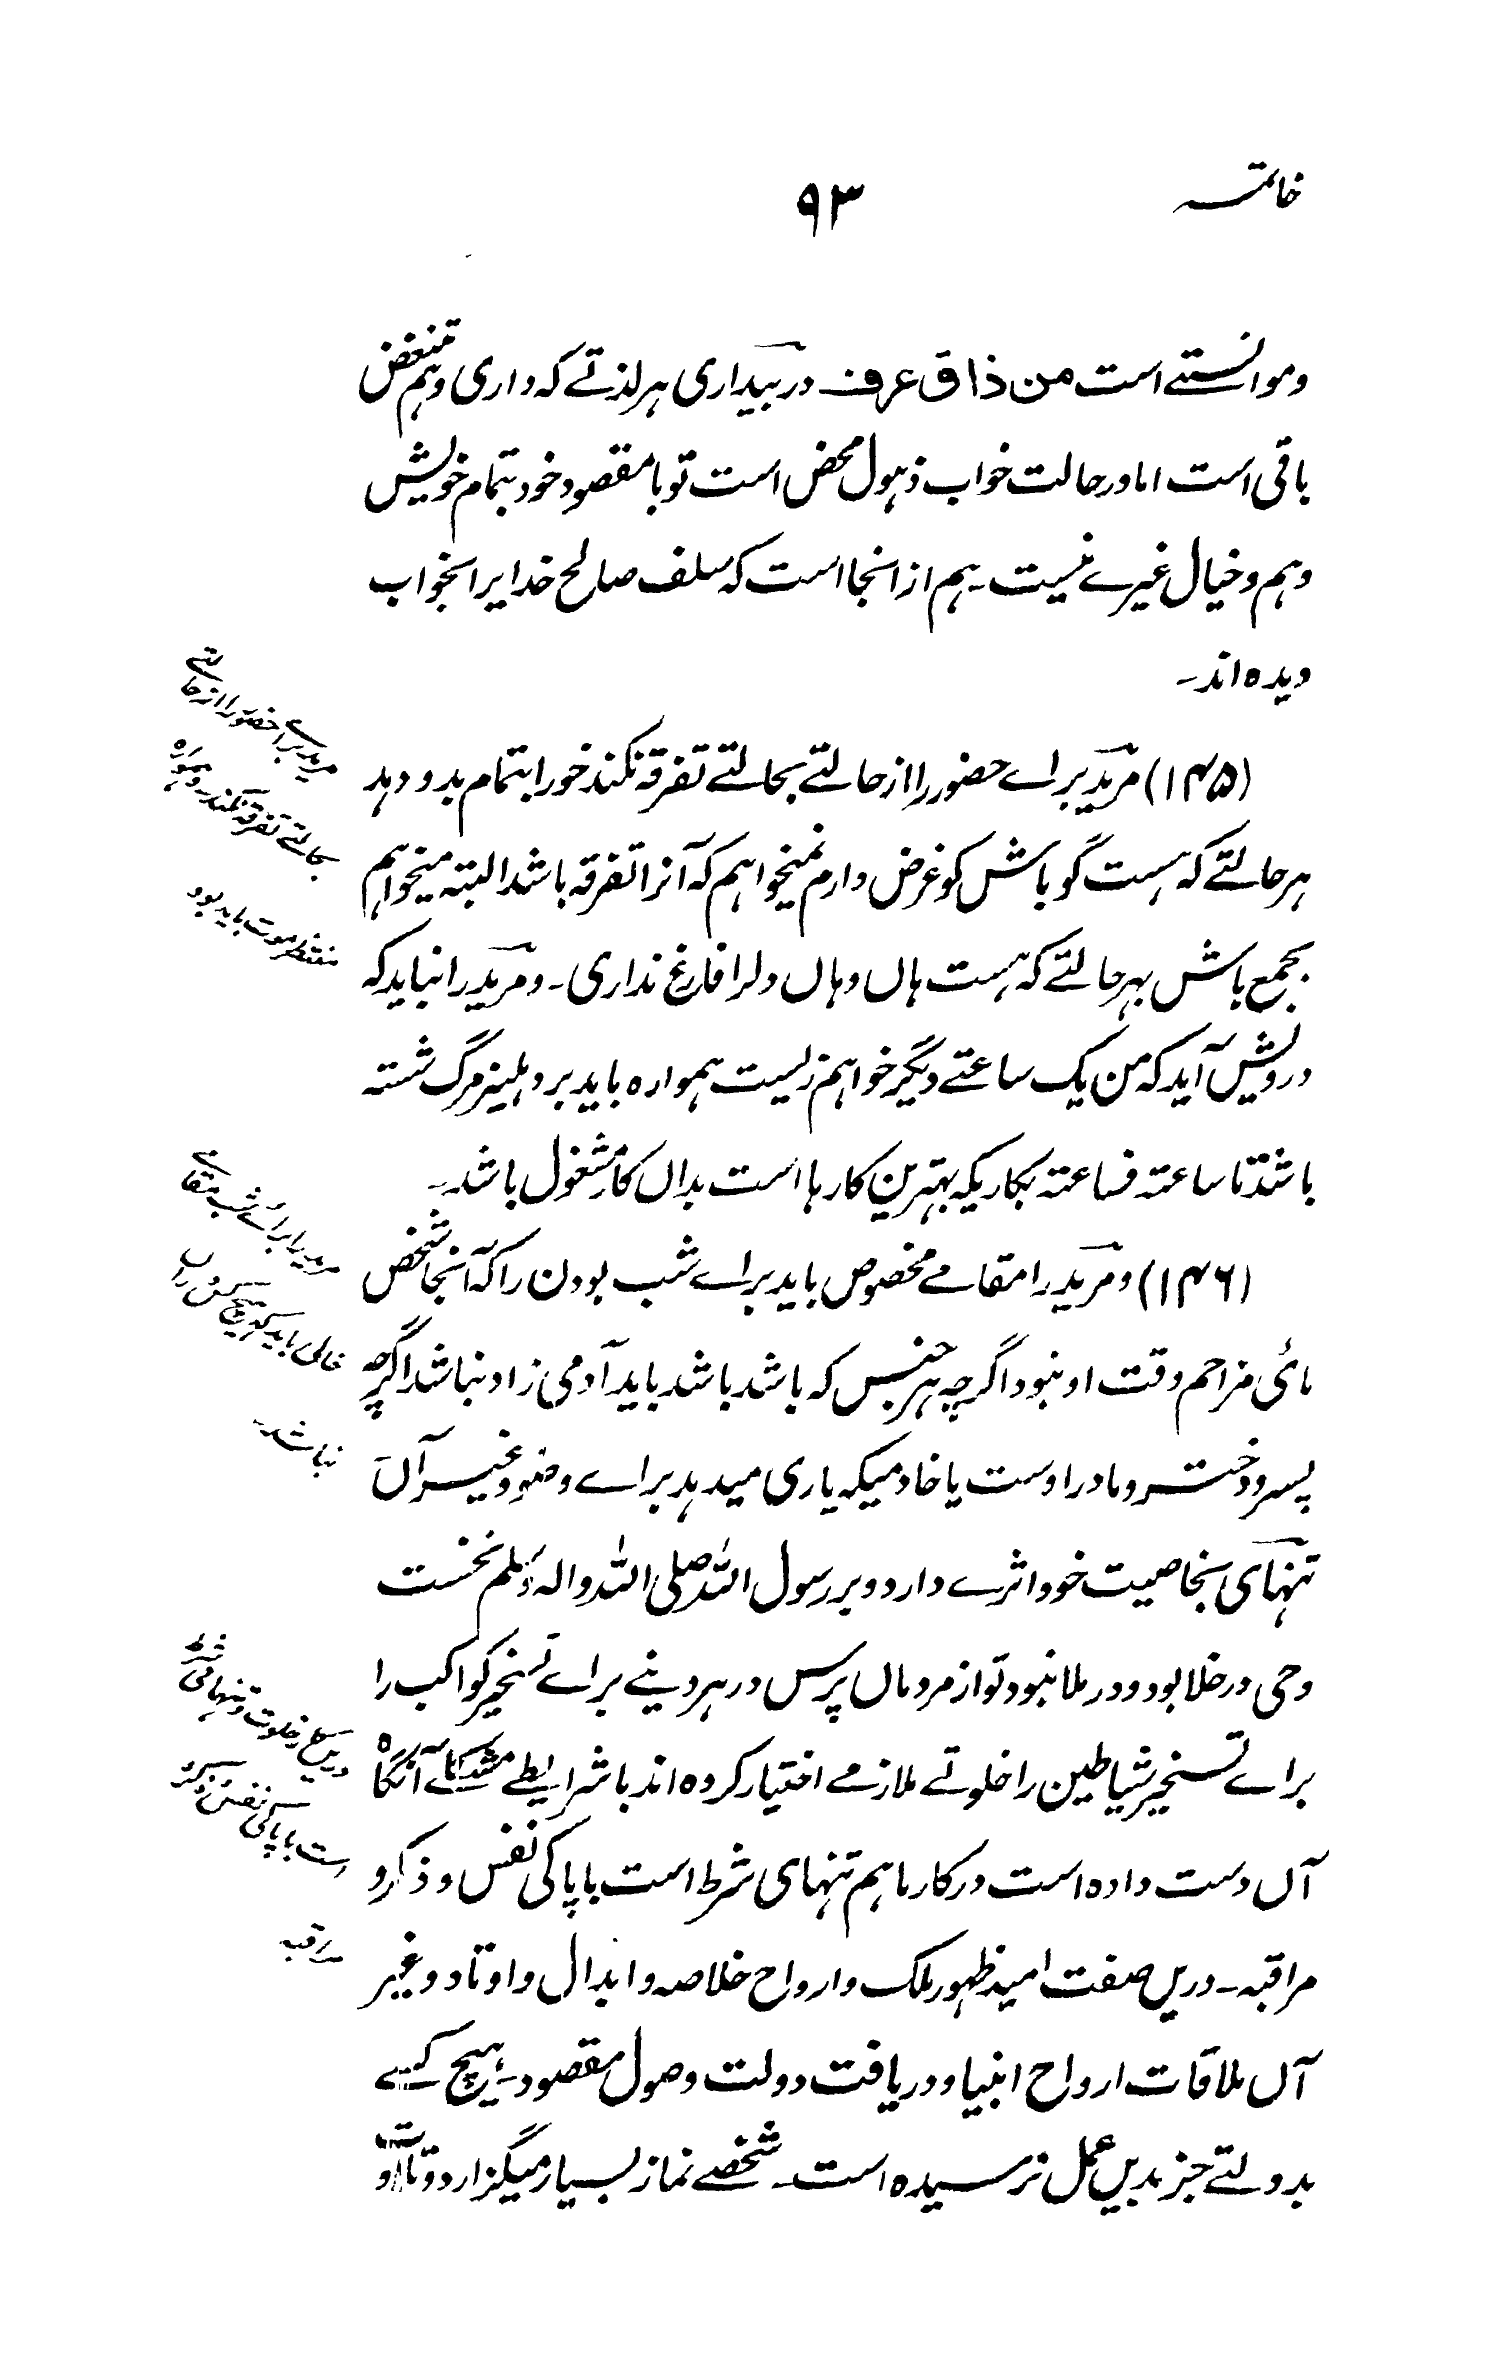 خاتمہ
۹۳
و موانستے است من ذاق عرف در بیداری ہر لذتے کہ داری وہم تنغض
باقی است اما در حالت خواب ذہول محض است تو با مقصود خود بتمام خویش
وہم و خیال غیرے نیست۔ ہم از انجا است کہ سلف صالح خدایرا بخواب
دیدہ اند۔
(۱۴۵) مرید براے حضور را از حالتے بحالتے تفرقہ نکند خود را بتمام بدو دہد
ہر حالتے کہ ہست گو باش کو غرض دارم نمیخواہم کہ آنرا تفرقہ باشد البتہ میخواہم
بجمع باش بہر حالتے کہ ہست ہاں وہاں دلرا فارغ نداری۔ و مرید را نباید کہ
درویش آید کہ من یک ساعتے دیگر خواہم زیست ہموارہ باید بر دہلیز مرگ نشستہ
باشد تا ساعتہ فساعتہ بکاریکہ بہترین کارہا است بداں کار مشغول باشد۔
(۱۴۶) و مرید را مقامے مخصوص باید براے شب بودن را کہ آنجا شخص
مائی مزاحم وقت او نبود اگرچہ ہر جنس کہ باشد باشد باید آدمی زاد نباشد اگرچہ
پسر و دختر و مادر اوست یا خادمیکہ یاری میدہد براے وضو و غیر آں
تنہای بخاصیت خود اثرے دارد و بر رسول اللہ صلی اللہ والہ وسلم نخست
وحی در خلا بود و در ملا نبود تو از مردماں پرس در ہر دینے براے تسخیر کواکب را
براے تسخیر شیاطین را خلوتے ملازمے اختیار کردہ اند با شرایطے آنگاہ
آں دست دادہ است در کار ما ہم تنہای شرط است با پاکی نفس و ذکر و
مراقبہ۔ دریں صفت امید ظہور ملک و ارواح خلاصہ و ابدال و اوتاد و غیر
آں ملاقات ارواح انبیا و دریافت دولت وصول مقصود۔ ہیچ کسے
بدولتے جز بدیں عمل نرسیدہ است۔ شخصے نماز بسیار میگزارد و
مرید براے حضور را از حالتے
بحالتے تفرقہ نکند۔ و ہموارہ
منتظر موت باید بود
مرید را براے شب مقامے
خالی باید کہ ہیچ کس دراں
نباشد۔
دریں کار خلوت و تنہائی شرط
است با پاکی نفس و ذکر و
مراقبہ